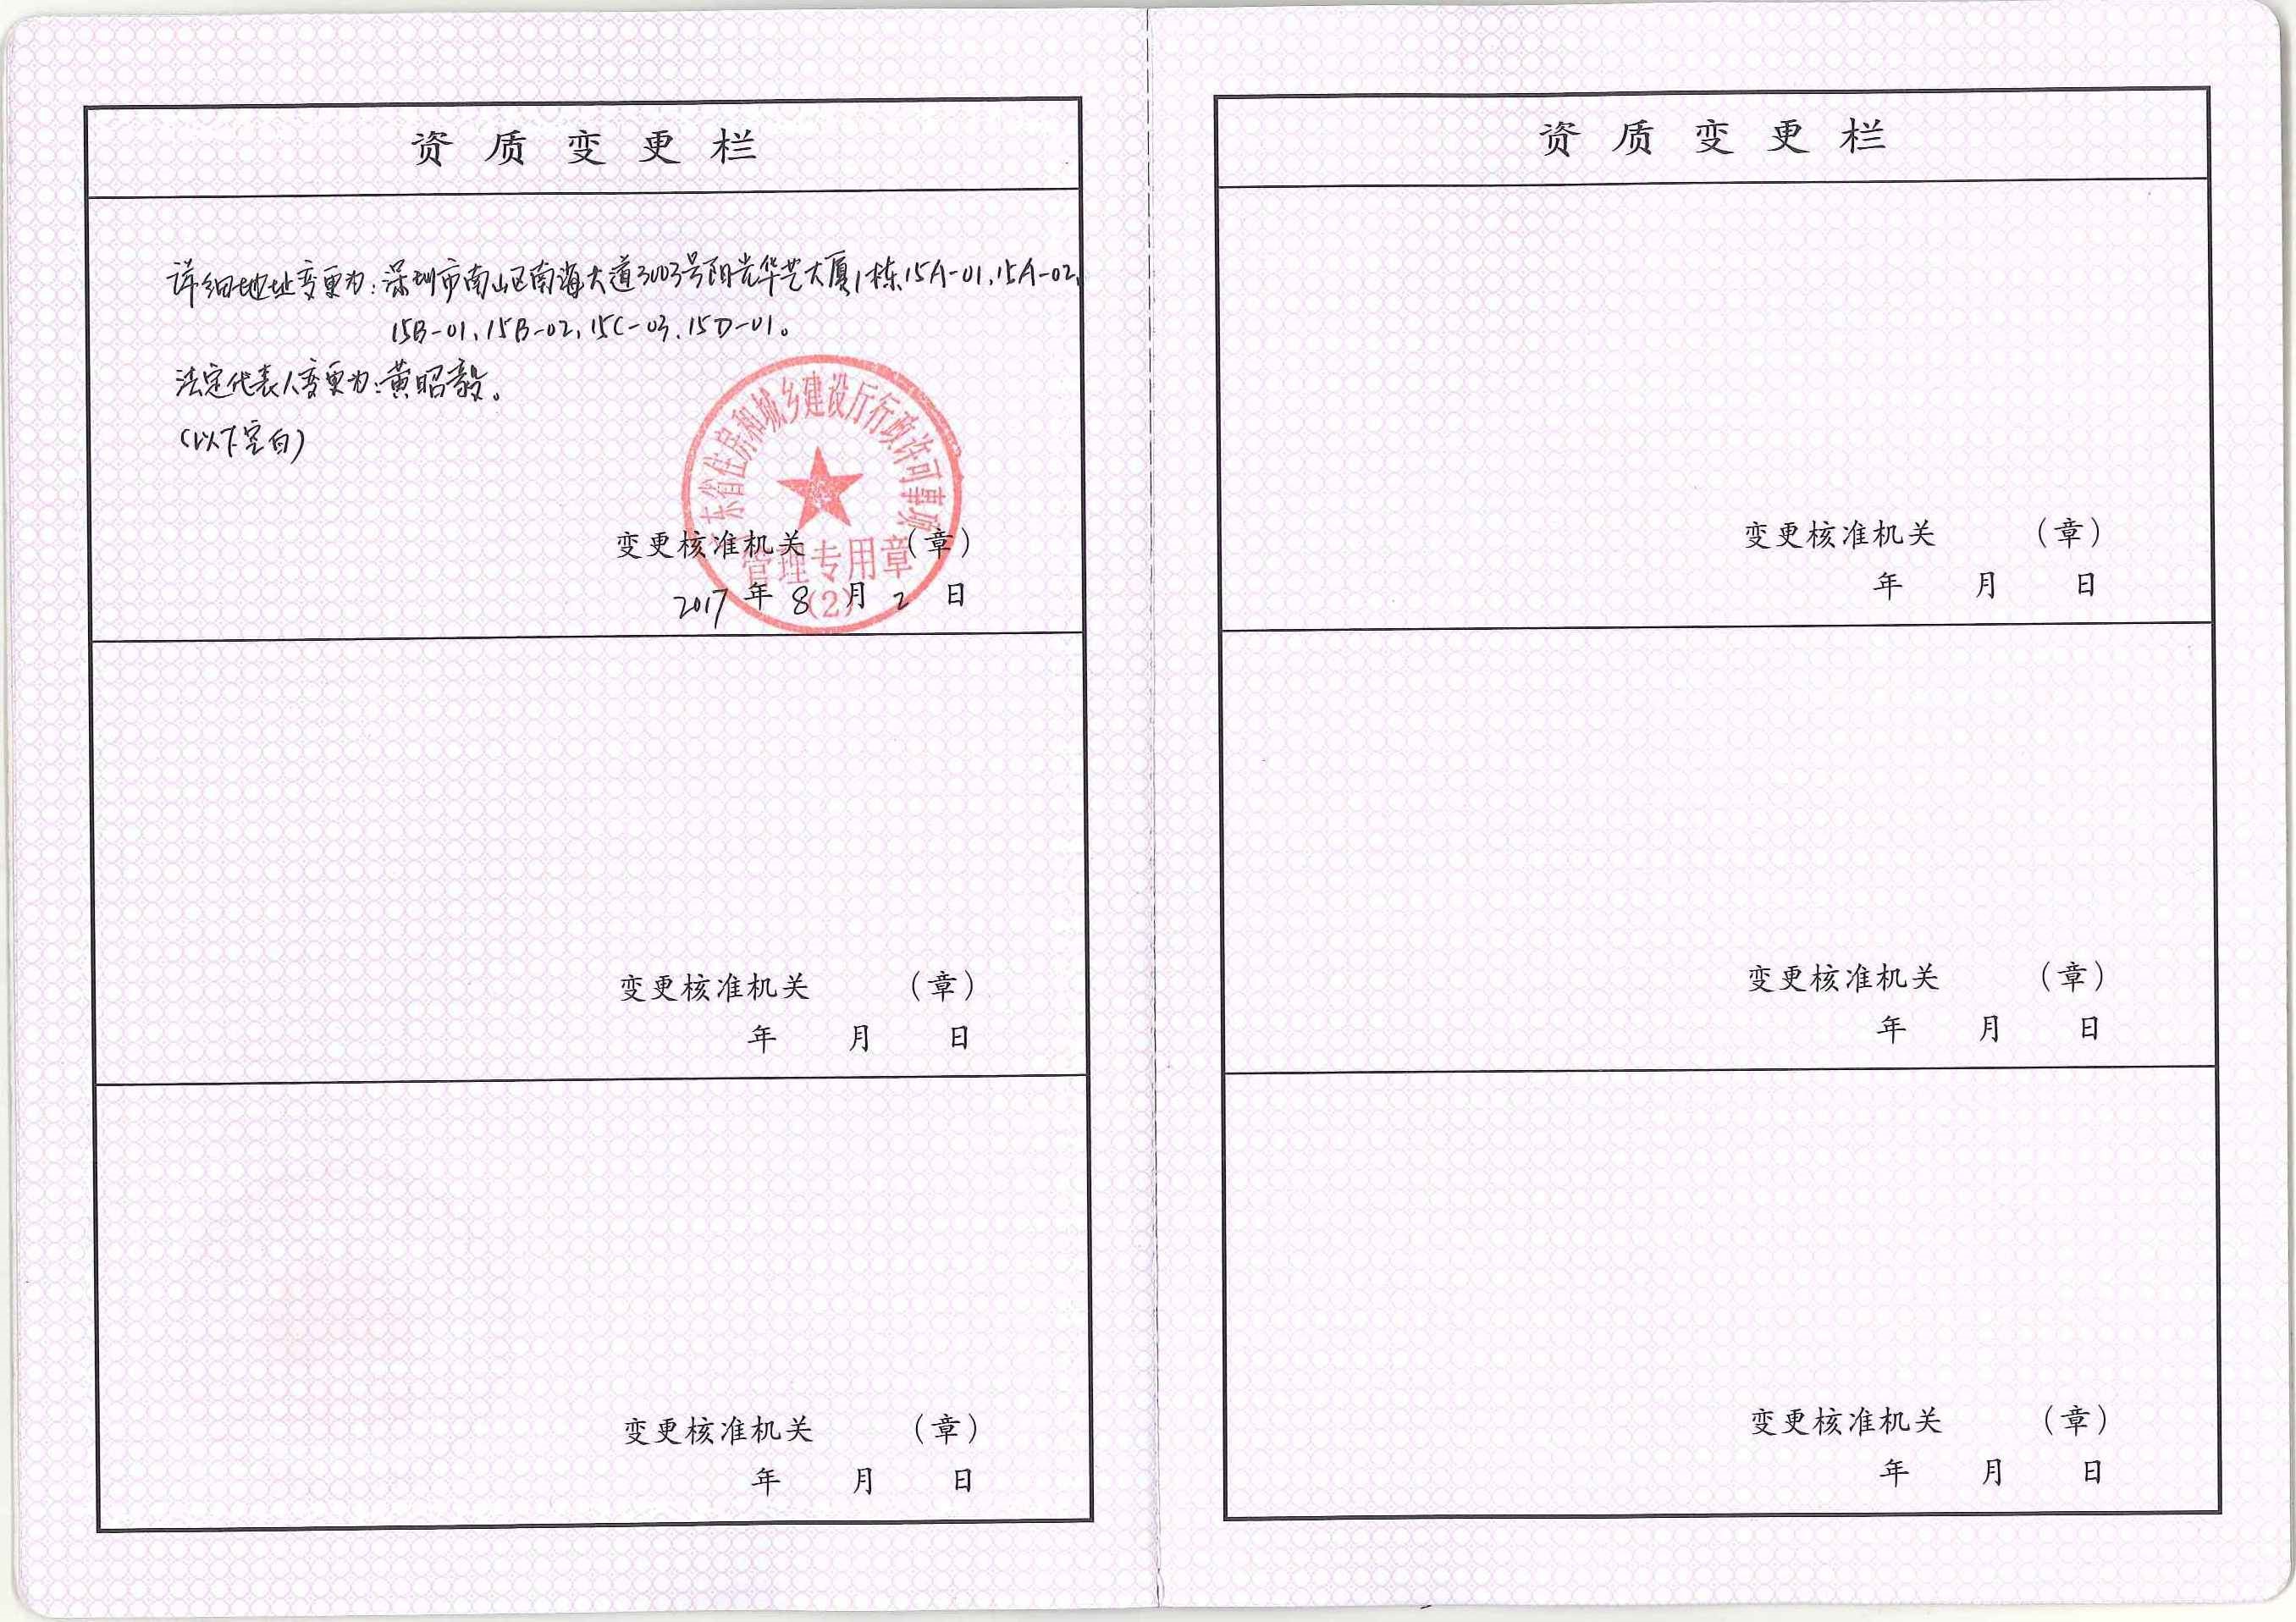 资质变更栏
详细地址变更为:深圳市南山区南海大道3003号阳光华艺大厦1栋15A-01、15A-02、
15B-01、15B-02、15C-03、15D-01。
法定代表人变更为:黄昭毅。
(以下空白)
东省住房和城乡建设厅行政许可事项
管理专用章
(2)
变更核准机关 (章)
2017年8月2日
变更核准机关 (章)
年 月 日
变更核准机关 (章)
年 月 日
资质变更栏
变更核准机关 (章)
年 月 日
变更核准机关 (章)
年 月 日
变更核准机关 (章)
年 月 日